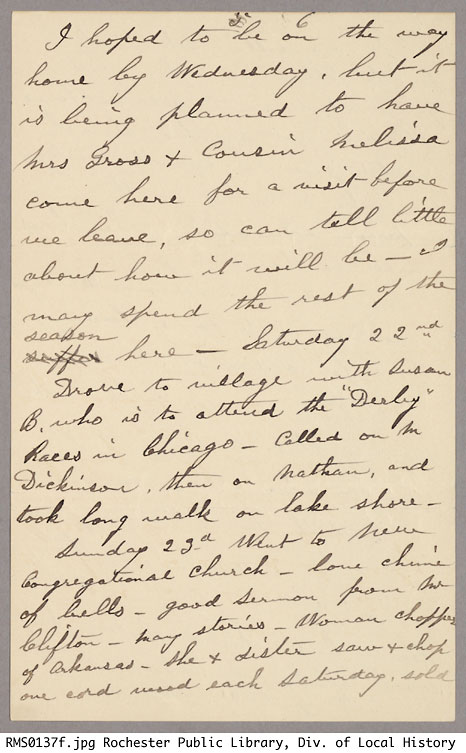 I hoped to be on the way
home by Wednesday, but it
is being planned to have
Mrs Gross + Cousin Melissa
come here for a visit before
we leave, so can tell little
about how it will be - I
may spend the rest of the
season
here - Saturday 22nd
Drove to village with Susan
B. who is to attend the "Derby"
Races in Chicago - Called on M
Dickinson, then on Nathan, and
took long walk on lake shore -
Sunday 23d Went to New
Congregational Church - love chime
of bells - good sermon from Mr
Clifton - many stories - Woman chopper
of Arkansas - She + sister saw + chop
one cord wood each Saturday, sold
RMS0137f.jpg Rochester Public Library, Div. of Local History